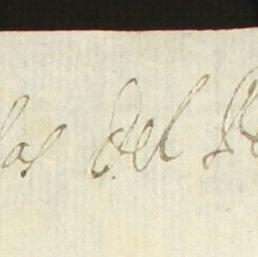 las del